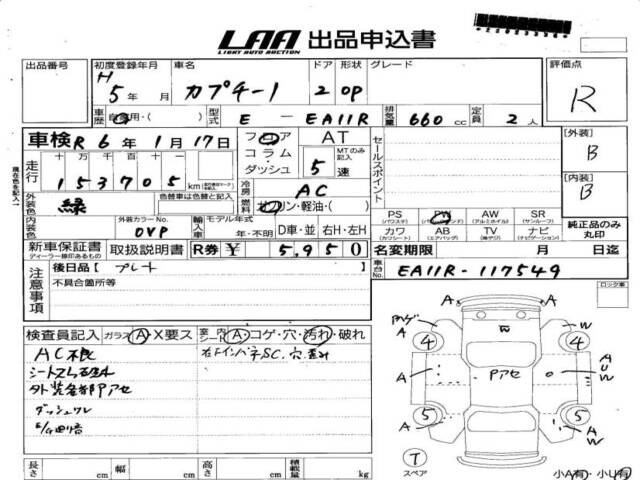 LAA 出品申込書
LIGHT AUTO AUCTION
出品番号 初度登録年月 車名 ドア 形状 グレード 評価点
H 5年 月 カプチーノ 2 OP R
車歴 自家用・( ) 型式 E - EA11R 排気量 660 cc 定員 2 人
車検 R 6年 1月 17日 フロア コラム ダッシュ AT MTのみ記入 5 速 セールスポイント [外装] B
走行 十 万 千 百 十 一 153705 km 冷房 AC [内装] B
外装色 緑 色替車は色替と記入 燃料 ガソリン・軽油・( )
外装カラーNo. OVP 輸入車 モデル年式 年・不明 D車・並 右H・左H
PS (パワステ) PW (パワーウィンド) AW (アルミホイル) SR (サンルーフ)
カワ (カワシート) AB (エアバッグ) TV (地デジ) ナビ 純正品のみ丸印
新車保証書 ディーラー様印あるもの 取扱説明書 R券 ¥ 5,950 名変期限 月 日迄
注意事項 後日品 [ プレート ] 車台No. EA11R-117549
不具合箇所等
ロック車
検査員記入 ガラス A・X要ス 室内 シート A・コゲ・穴・汚れ・破れ
AC不良
ダッシュワレ
A A
A W W
4 4
A Pアセ A U W
5 5
A A W
T
スペア
長さ cm 幅 cm 高さ cm 積載量 kg 小A有・小U有
現在色を記入